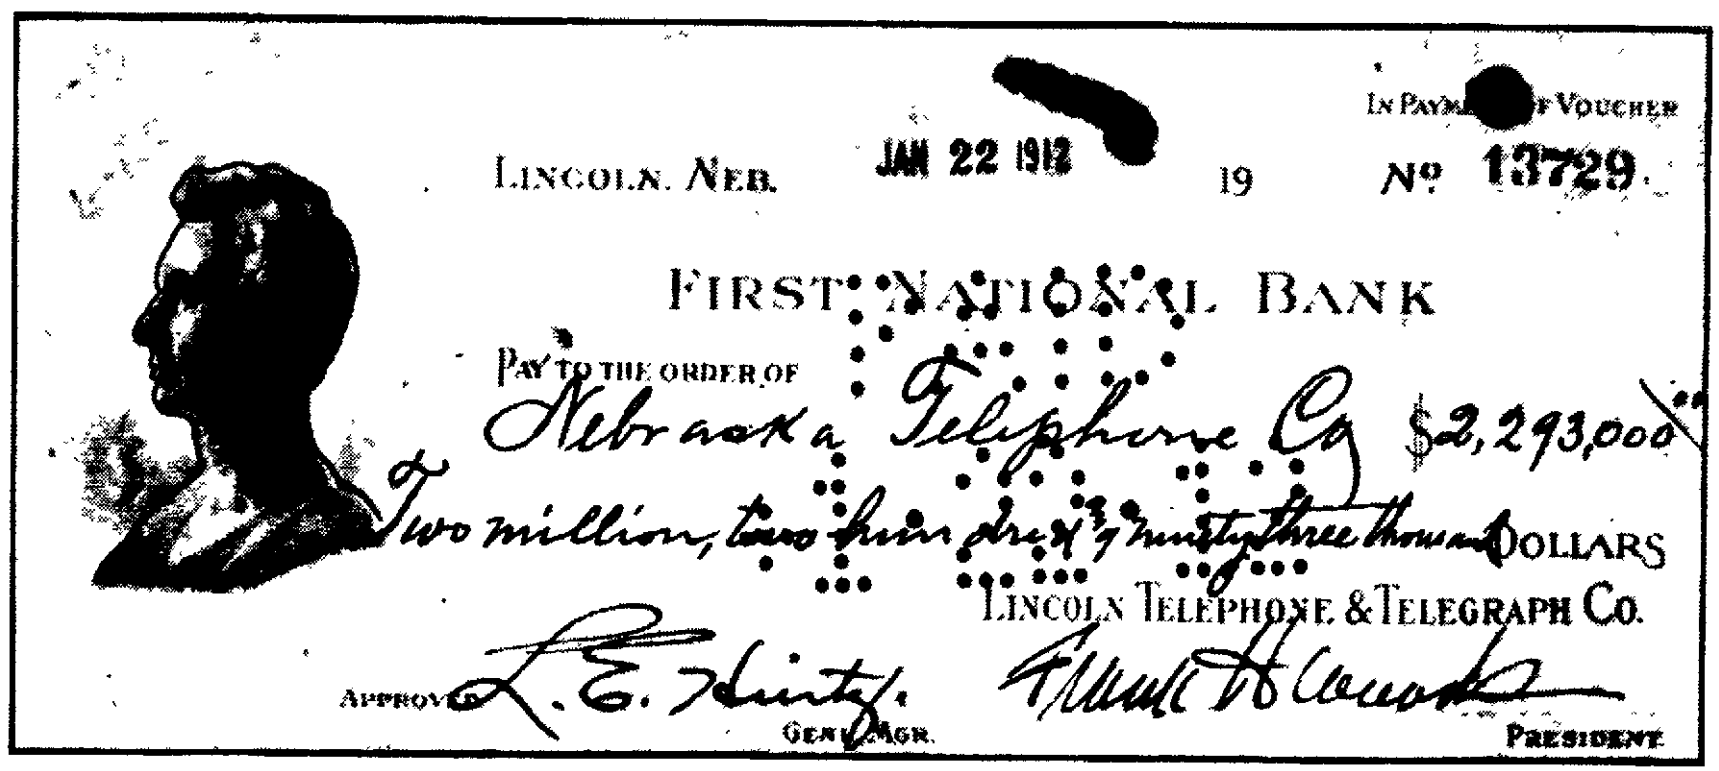 IN PAYM OF VOUCHER
LINCOLN. NEB. JAN 22 1912 19 No. 13729
FIRST NATIONAL BANK
PAY TO THE ORDER OF
Nebraska Telephone Co $2,293,000
Two million, two hundred & ninety three thousand DOLLARS
LINCOLN TELEPHONE & TELEGRAPH CO.
APPROVED L. E. Hurtz. Frank H Woods
GENL MGR. PRESIDENT